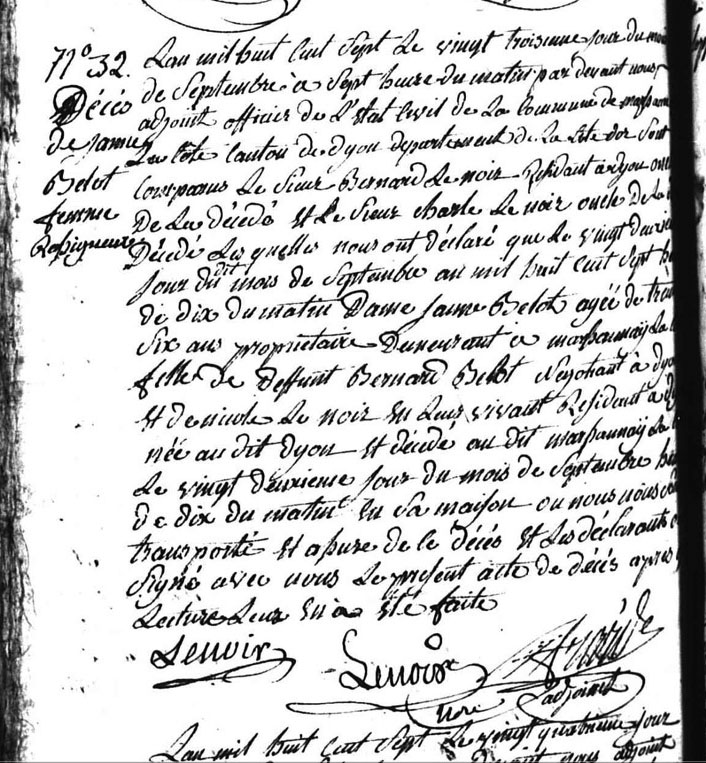 N° 32.
Décés
de Janne
Belot
femme
Lan mil huit Cent Sept Le vingt troisieme Jour du mois
de Septembre à Sept heure du matin par devant nous
adjoint officier de L'Etat Civil de La Commune de marsanna
La Côte Canton de dyon departement de La Cote dor Sont
Comparus Le Sieur Bernard Le noir Residant a dyon oncl
De La décédé et Le Sieur charle Le noir oncle de La
Décédé Les quelles nous ont déclaré que Le vingt deuxie
Jour du dit mois de Septembre an mil huit Cent Sept h
de dix du matin Dame Janne Belot agée de tren
Six ans propriétaire Demeurant a marsannay La
fille de deffunt Bernard Belot Negotiant à dyo
et de nicole Le noir en Leur vivant Residant a d
née au dit dyon et décédé au dit marsannay La
Le vingt deuxieme Jour du mois de Septembre h
de dix du matin en Sa maison ou nous nous
transporté et de Le décés et Les déclarants
Signé avec nous Le présent acte de décés apres
Lecture Leur en a eté faite
Lenoir
Lenoir
adjoint
Lan mil huit Cent Sept Le vingt quatrieme Jour
nous adjoint